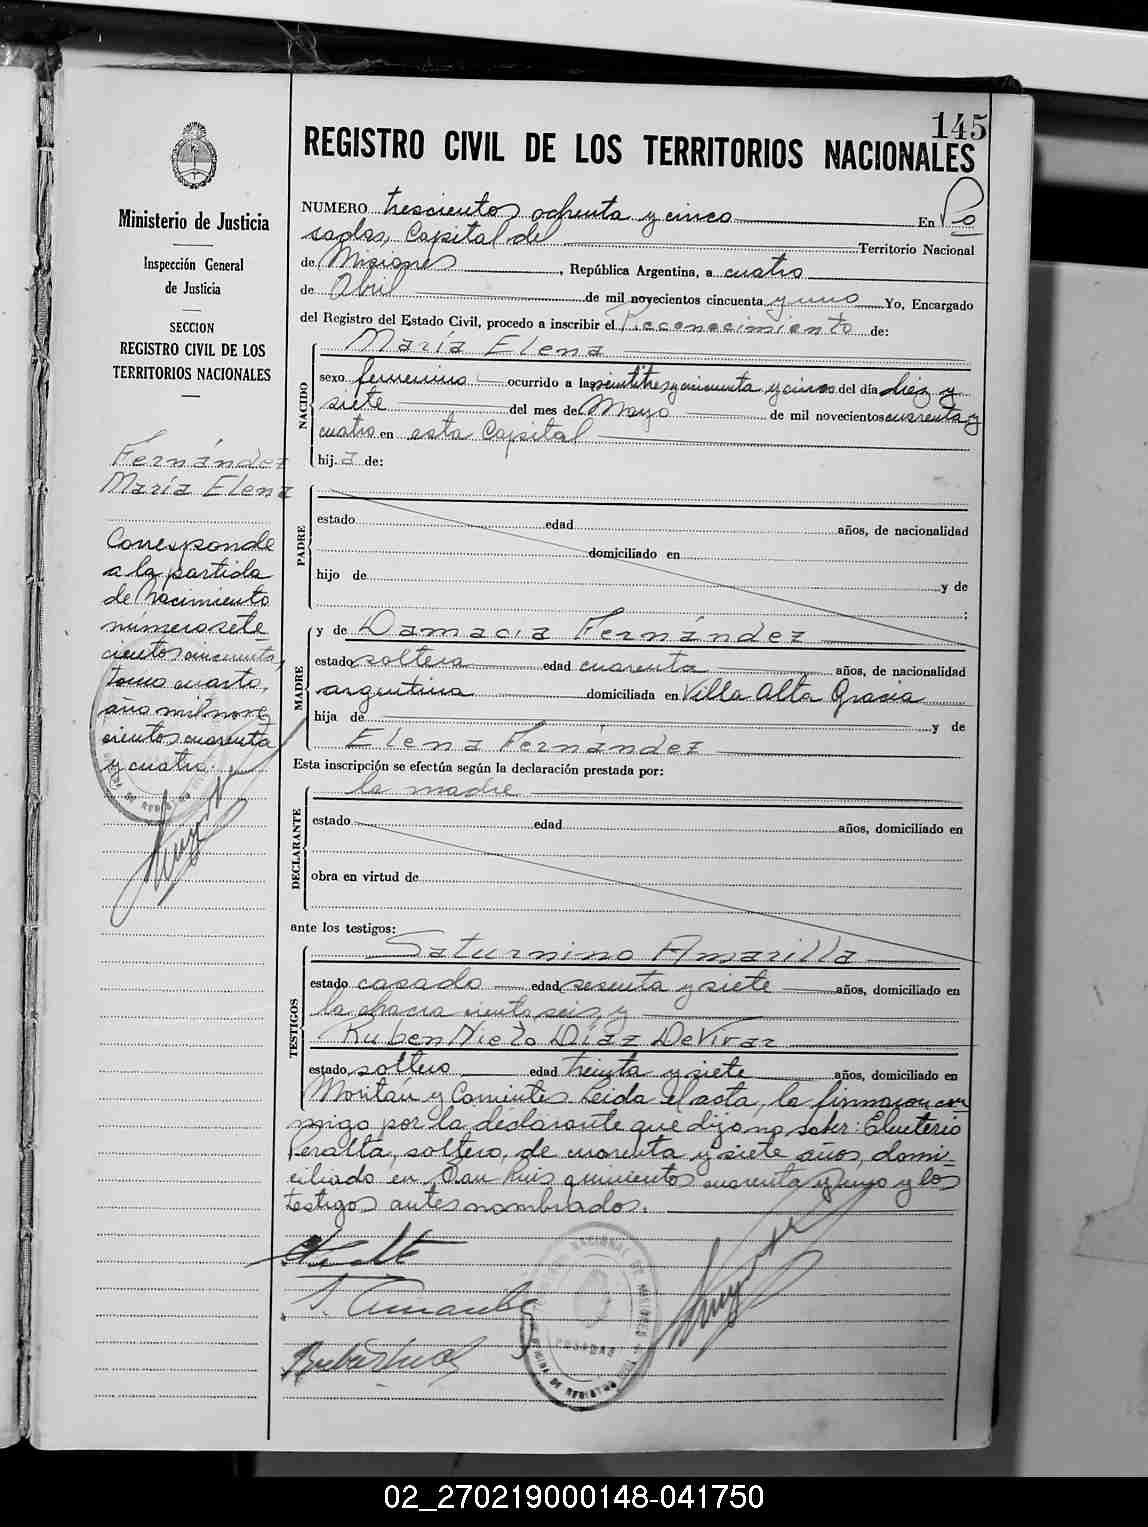 145
REGISTRO CIVIL DE LOS TERRITORIOS NACIONALES
Ministerio de Justicia
Inspección General
de Justicia
SECCION
REGISTRO CIVIL DE LOS
TERRITORIOS NACIONALES
Fernández
María Elena
Corresponde
a la partida
de Nacimiento
número sete
cientos cincuenta,
tomo cuarto,
año mil nove
cientos cuarenta
y cuatro.
NUMERO trescientos ochenta y cinco En Po
sadas, Capital del Territorio Nacional
de Misiones, República Argentina, a cuatro
de Abril de mil novecientos cincuenta y uno Yo, Encargado
del Registro del Estado Civil, procedo a inscribir el Reconocimiento de:
María Elena
NACIDO
sexo femenino ocurrido a las veintitres y cincuenta y cinco del día diez y
siete del mes de Mayo de mil novecientos cuarenta y
cuatro en esta Capital
hija de:
PADRE
estado edad años, de nacionalidad
domiciliado en
hijo de y de
;
MADRE
y de Damacia Fernández
estado soltera edad cuarenta años, de nacionalidad
argentina domiciliada en Villa Alta Gracia
hija de y de
Elena Fernández
Esta inscripción se efectúa según la declaración prestada por:
la madre
DECLARANTE
estado edad años, domiciliado en
obra en virtud de
ante los testigos:
Saturnino Amarilla
TESTIGOS
estado casado edad sesenta y siete años, domiciliado en
la chacra ciento seis, y
Ruben Nieto Díaz De Vivar
estado soltero edad treinta y siete años, domiciliado en
Moritán y Corrientes. Leida el acta, la firmaron con
migo por la declarante que dijo no saber: Eleuterio
Peralta, soltero, de cuarenta y siete años, domi-
ciliado en San Luis quinientos cuarenta y uno y los
testigos antes nombrados.
POSADAS
02_270219000148-041750